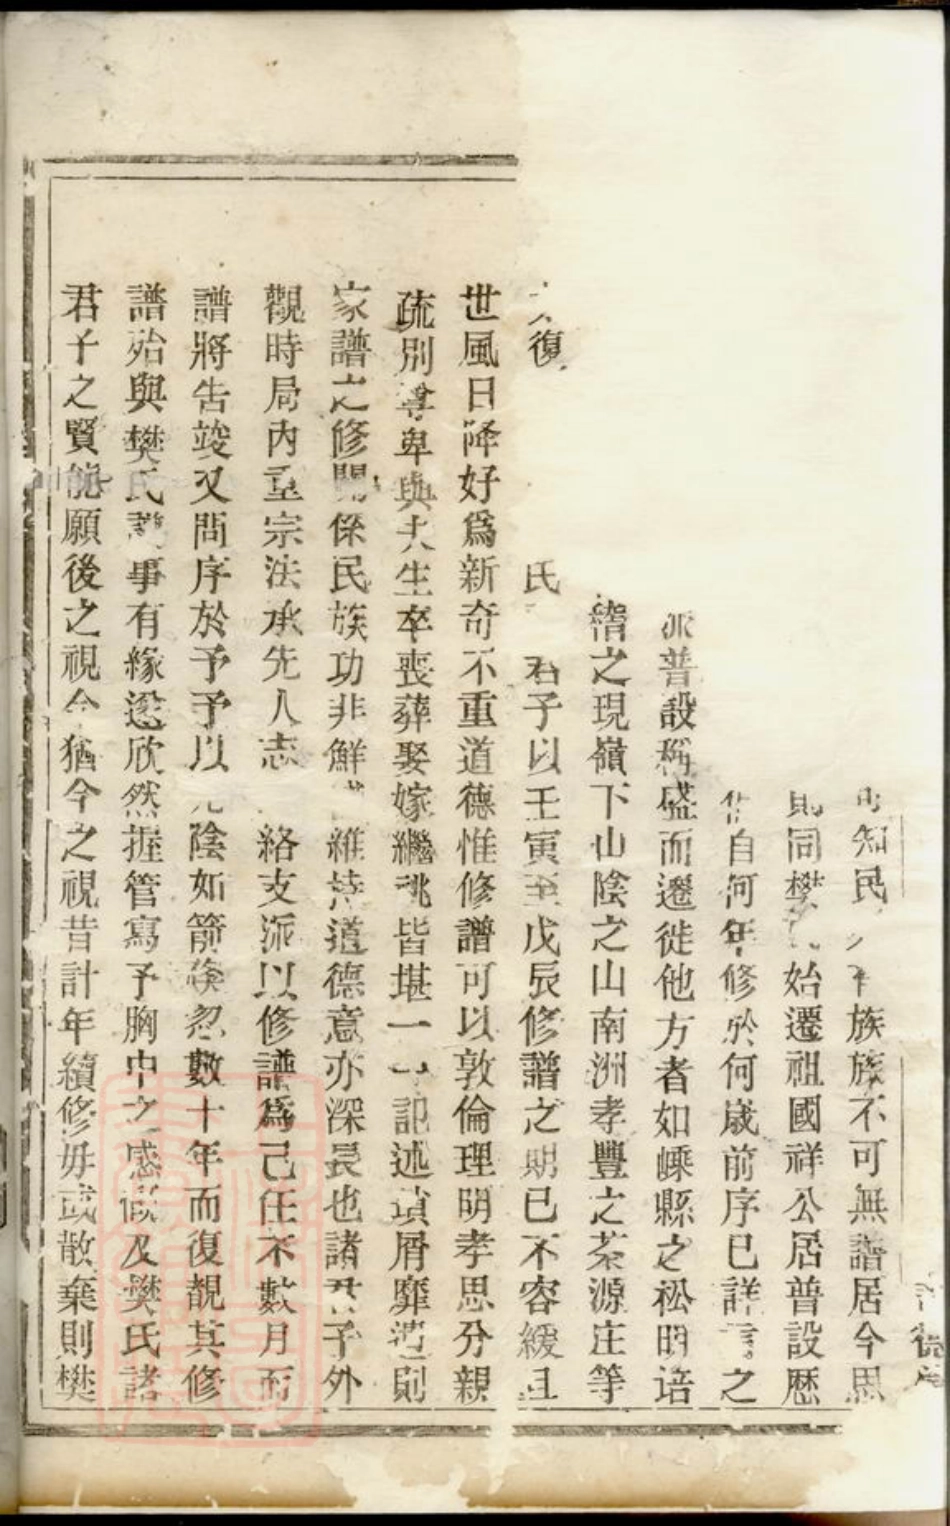 知民 族族不可無譜居今思
同樊 始遷祖國祥公居普設歷
自何年修於何歲前序已詳言之
派普設稱盛而遷徙他方者如嵊縣之松明培
之現嶺下山陰之山南洲孝豐之茶源庄等
復 氏 君子以壬寅至戊辰修譜之期已不容緩且
世風日降好為新奇不重道德惟修譜可以敦倫理明孝思分親
疏別尊卑與夫生卒喪葬娶嫁繼祧皆堪一一記述瑣屑靡遺則
家譜之修關係民族功非鮮 維持道德意亦深長也諸君子外
觀時局內重宗法承先人志 絡支派以修譜為己任不數月而
譜將告竣又問序於予予以光陰如箭倏忽數十年而復覩其修
譜殆與樊氏譜事有緣遂欣然握管寫予胸中之感慨及樊氏諸
君子之賢能願後之視今猶今之視昔計年續修毋或散棄則樊